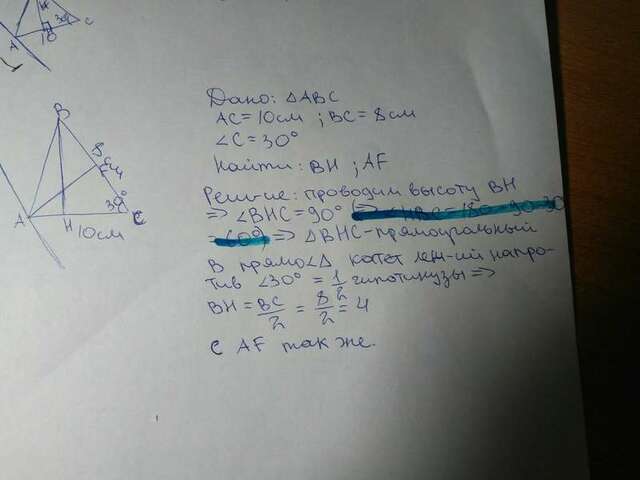 A
10
30
C
B
8 см
30°
A
H
C
10см
Дано: △ABC
AC = 10см ; BC = 8см
∠C = 30°
Найти: BH ; AF
Реш-ие: проводим высоту BH
=> ∠BHC = 90°
=> △BHC - прямоугольный
В прямо∠△ катет леж-ий напро-
тив ∠30° = 1/2 гипотинузы =>
BH = BC/2 = 8/2 = 4
С AF так же.